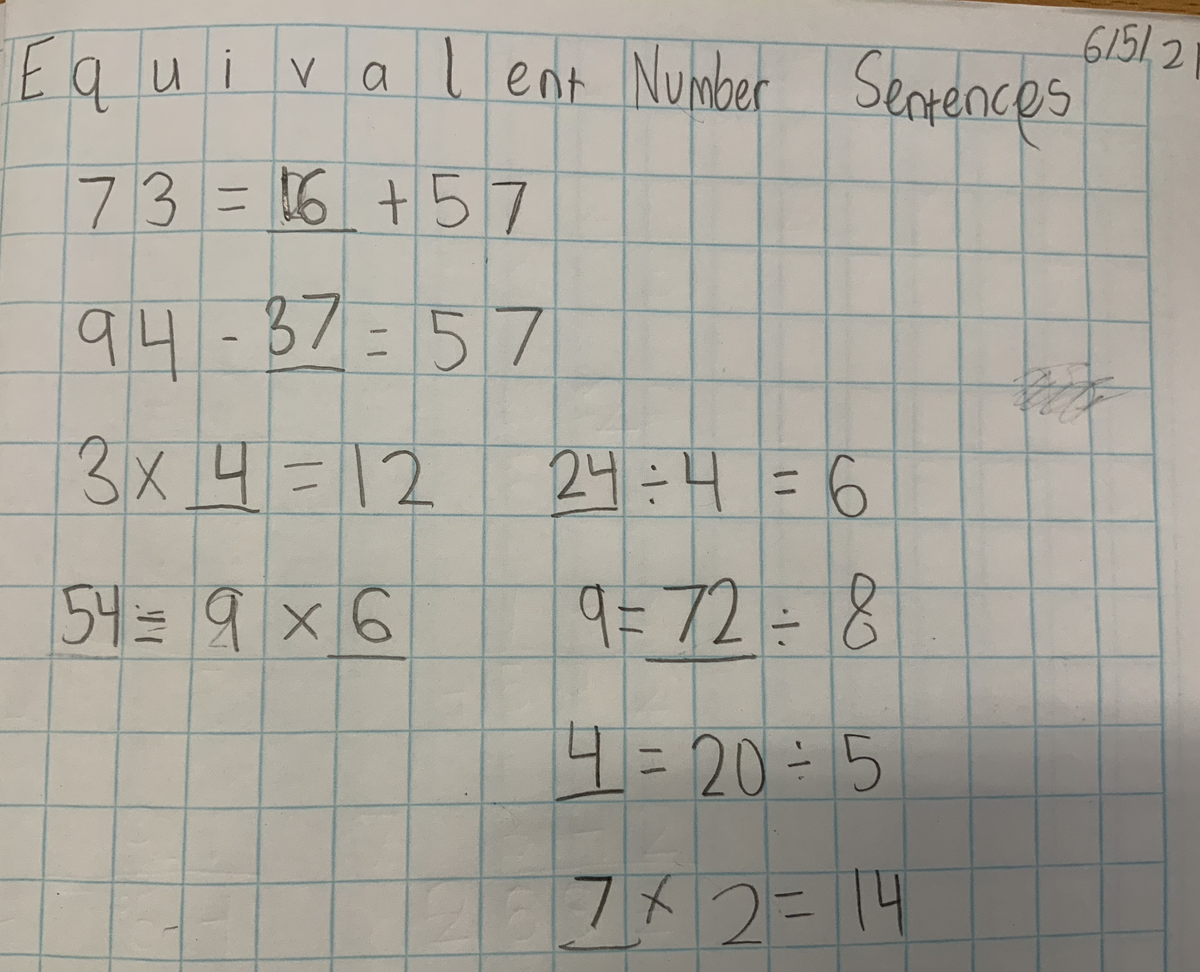 6/5/21
Equivalent Number Sentences
73 = 16 + 57
94 - 37 = 57
3 × 4 = 12 24 ÷ 4 = 6
54 = 9 × 6 9 = 72 ÷ 8
4 = 20 ÷ 5
7 × 2 = 14